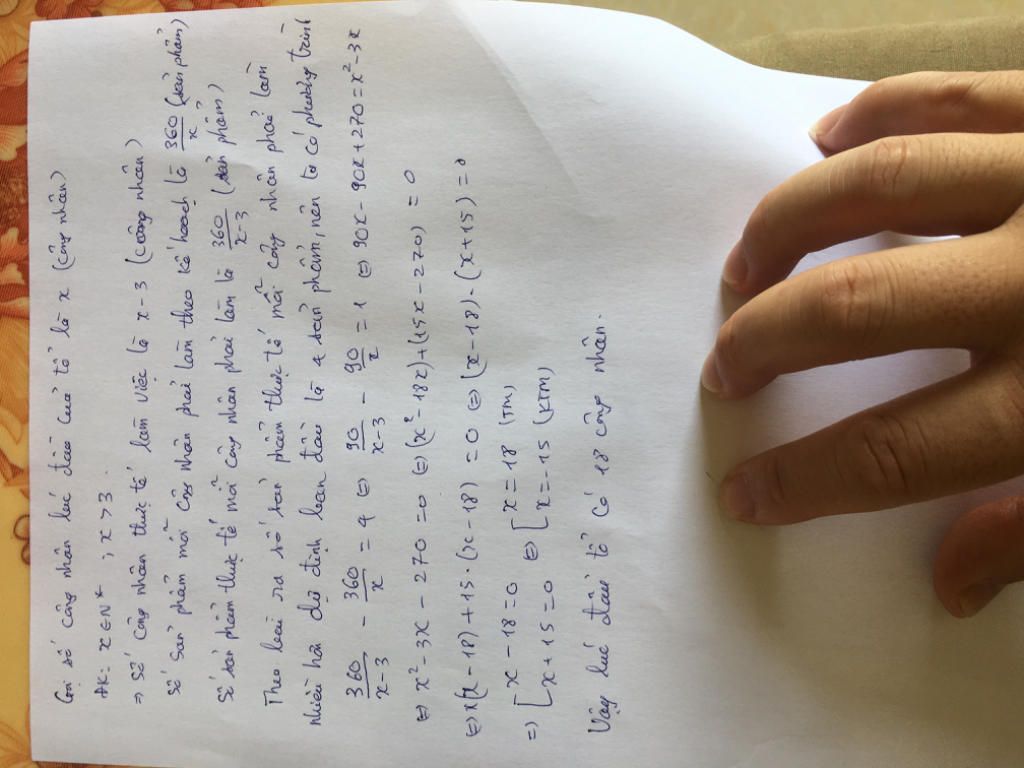 Gọi số công nhân lúc đầu của tổ là x (công nhân)
ĐK: x ∈ N* ; x > 3.
⇒ Số công nhân thực tế làm việc là x - 3 (công nhân)
Số sản phẩm mỗi công nhân phải làm theo kế hoạch là 360/x (sản phẩm)
Số sản phẩm thực tế mỗi công nhân phải làm là 360/x-3 (sản phẩm)
Theo bài ra số sản phẩm thực tế mỗi công nhân phải làm
nhiều hơn dự định ban đầu là 4 sản phẩm, nên ta có phương trình
360/x-3 - 360/x = 4 ⇔ 90/x-3 - 90/x = 1 ⇔ 90x - 90x + 270 = x² - 3x
⇔ x² - 3x - 270 = 0 ⇔ (x² - 18x) + (15x - 270) = 0
⇔ x(x - 18) + 15.(x - 18) = 0 ⇔ (x - 18).(x + 15) = 0
⇒ [x - 18 = 0 ⇔ [x = 18 (TM)
[x + 15 = 0 [x = -15 (KTM)
Vậy lúc đầu tổ có 18 công nhân.